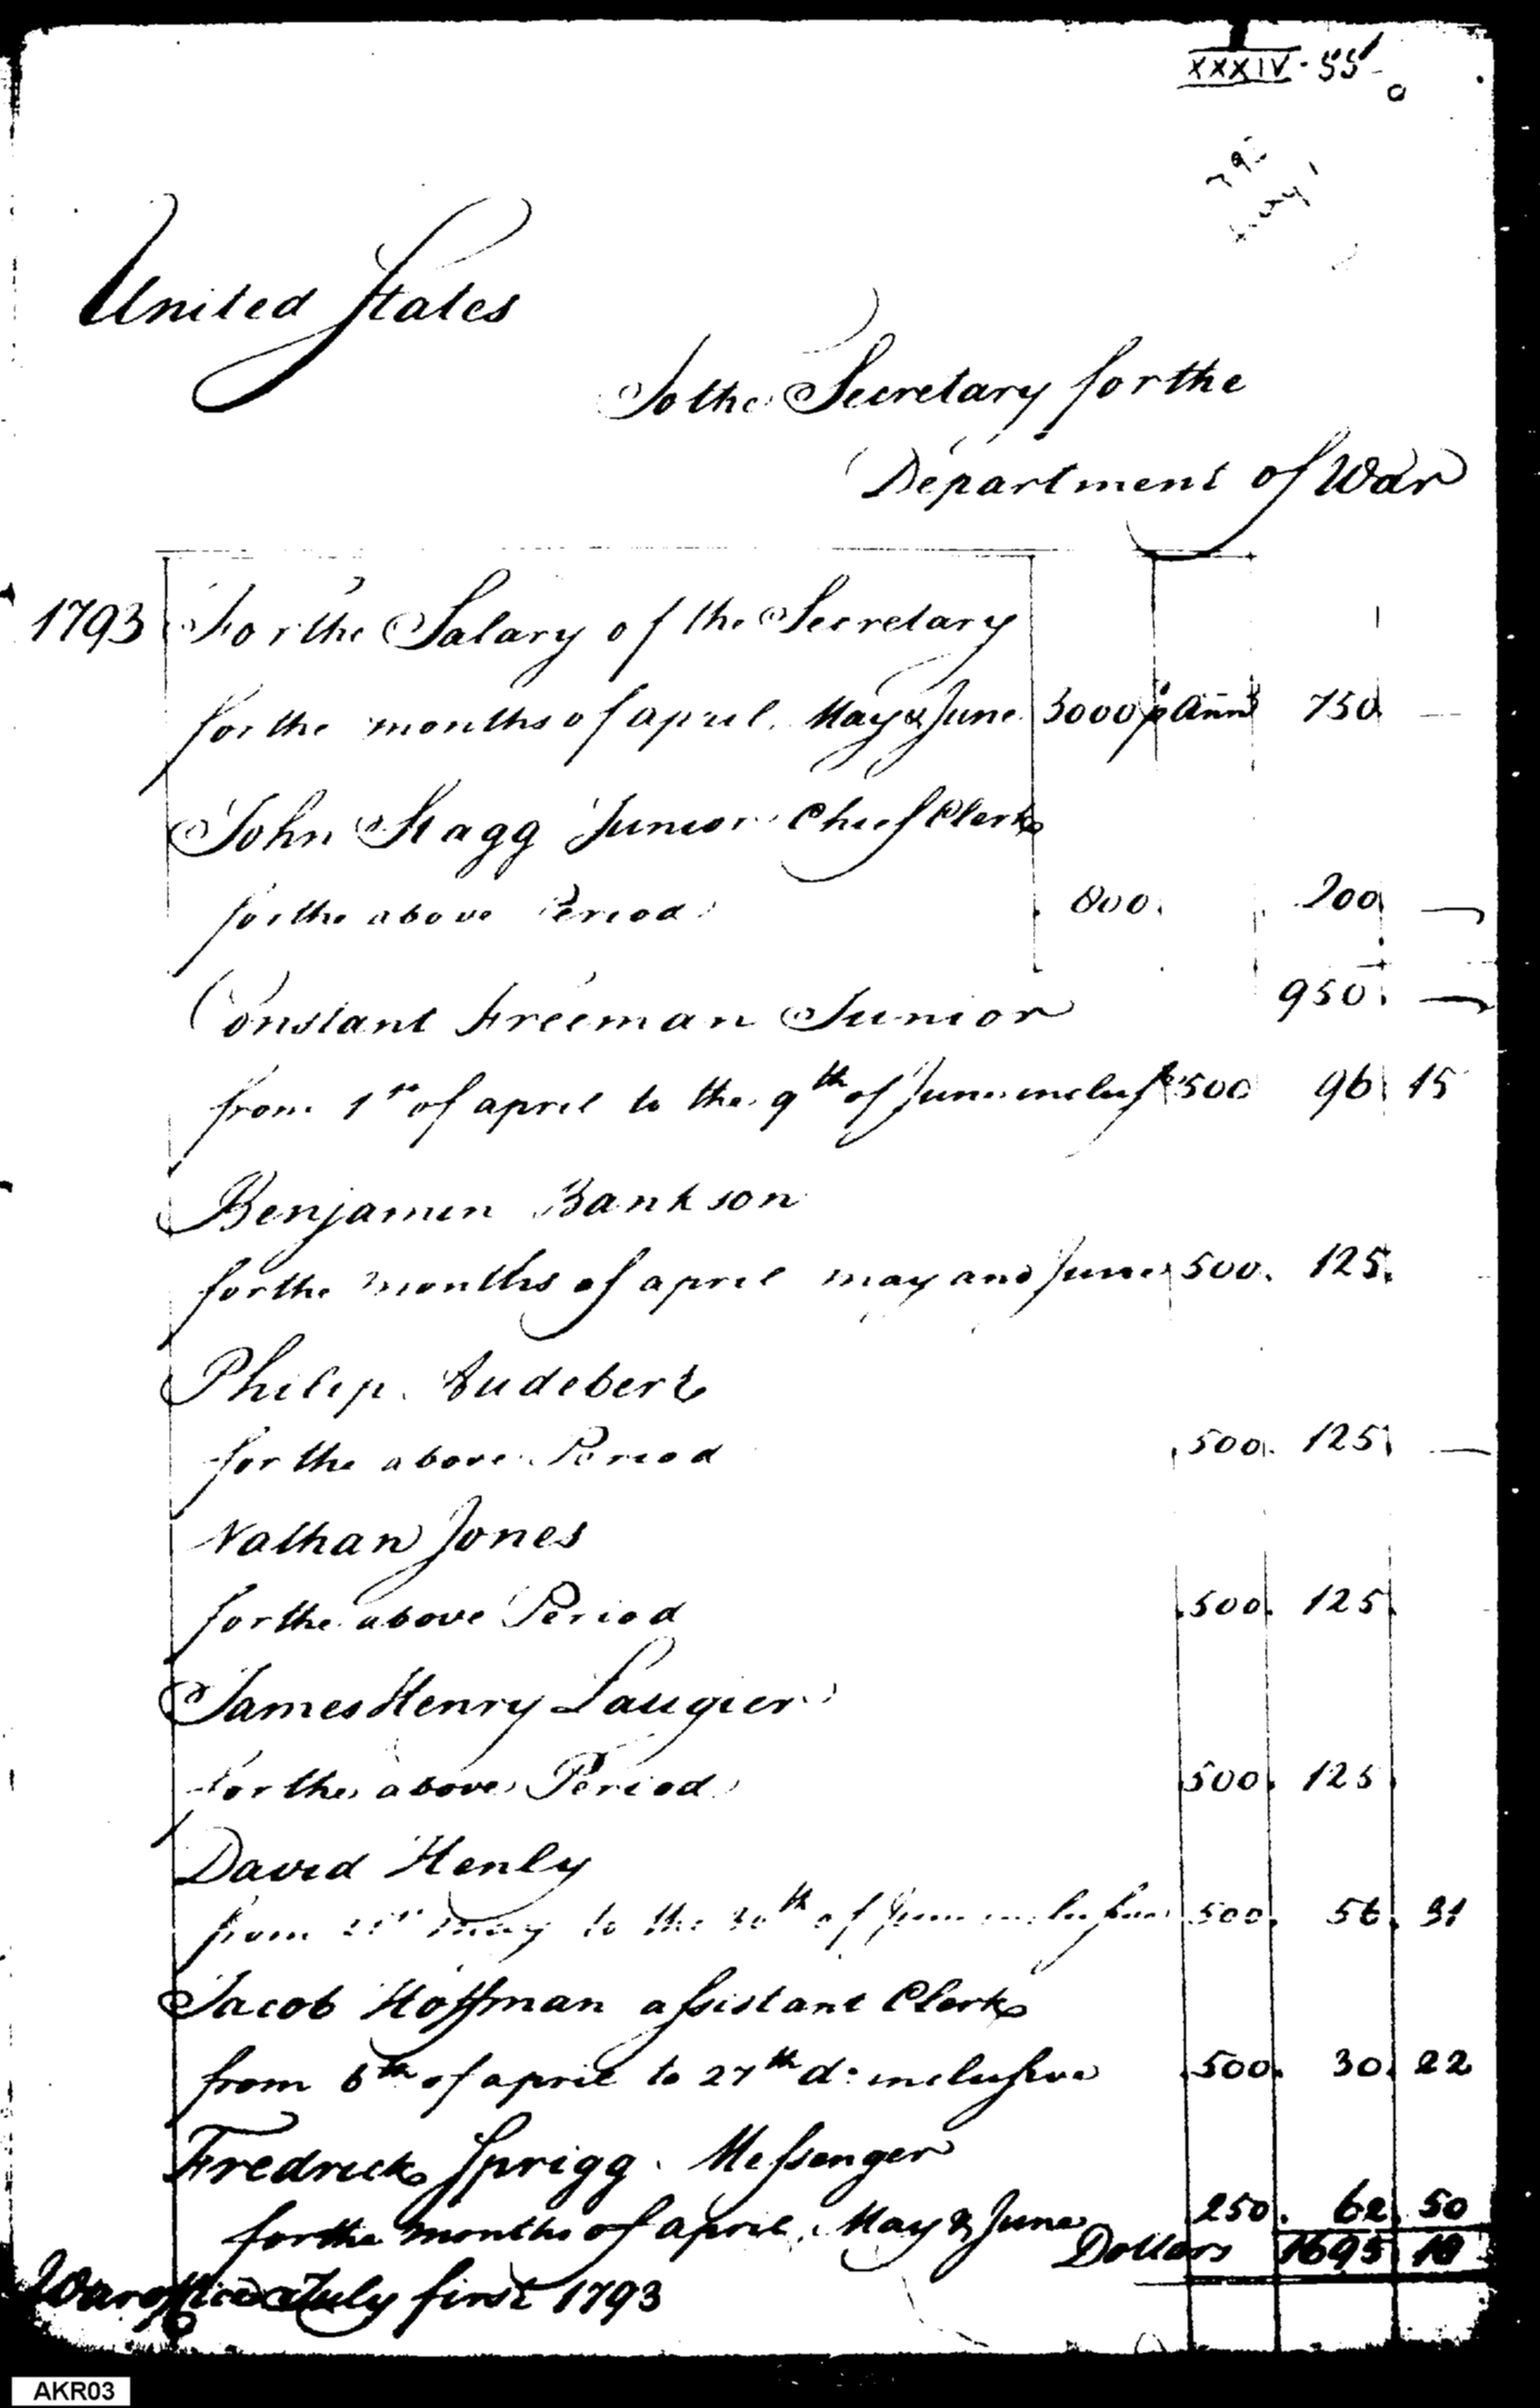 XXXIV - 55
United States
To the Secretary for the
Department of War
1793 For the Salary of the Secretary
for the months of april, May & June 3000 p Ann 750 —
John Stagg Junior Chief Clerk
for the above Period 800. 200 —
950. —
Constant Freeman Junior
from 1st of april to the 9th of June inclus 500 96 15
Benjamin Bankson
for the months of april may and June 500. 125.
Philip Audebert
for the above Period 500. 125 —
Nathan Jones
for the above Period 500. 125.
James Henry Laugier
for the above Period 500. 125
David Henly
from 21st may to the 30th of June inclusive 500. 56. 31
Jacob Hoffman assistant Clerk
from 6th of april to 27th do inclusive 500. 30. 22
Fredrick Sprigg. Messenger
for the months of april, May & June 250. 62. 50
Dollars 1695 18
War office July first 1793
AKR03